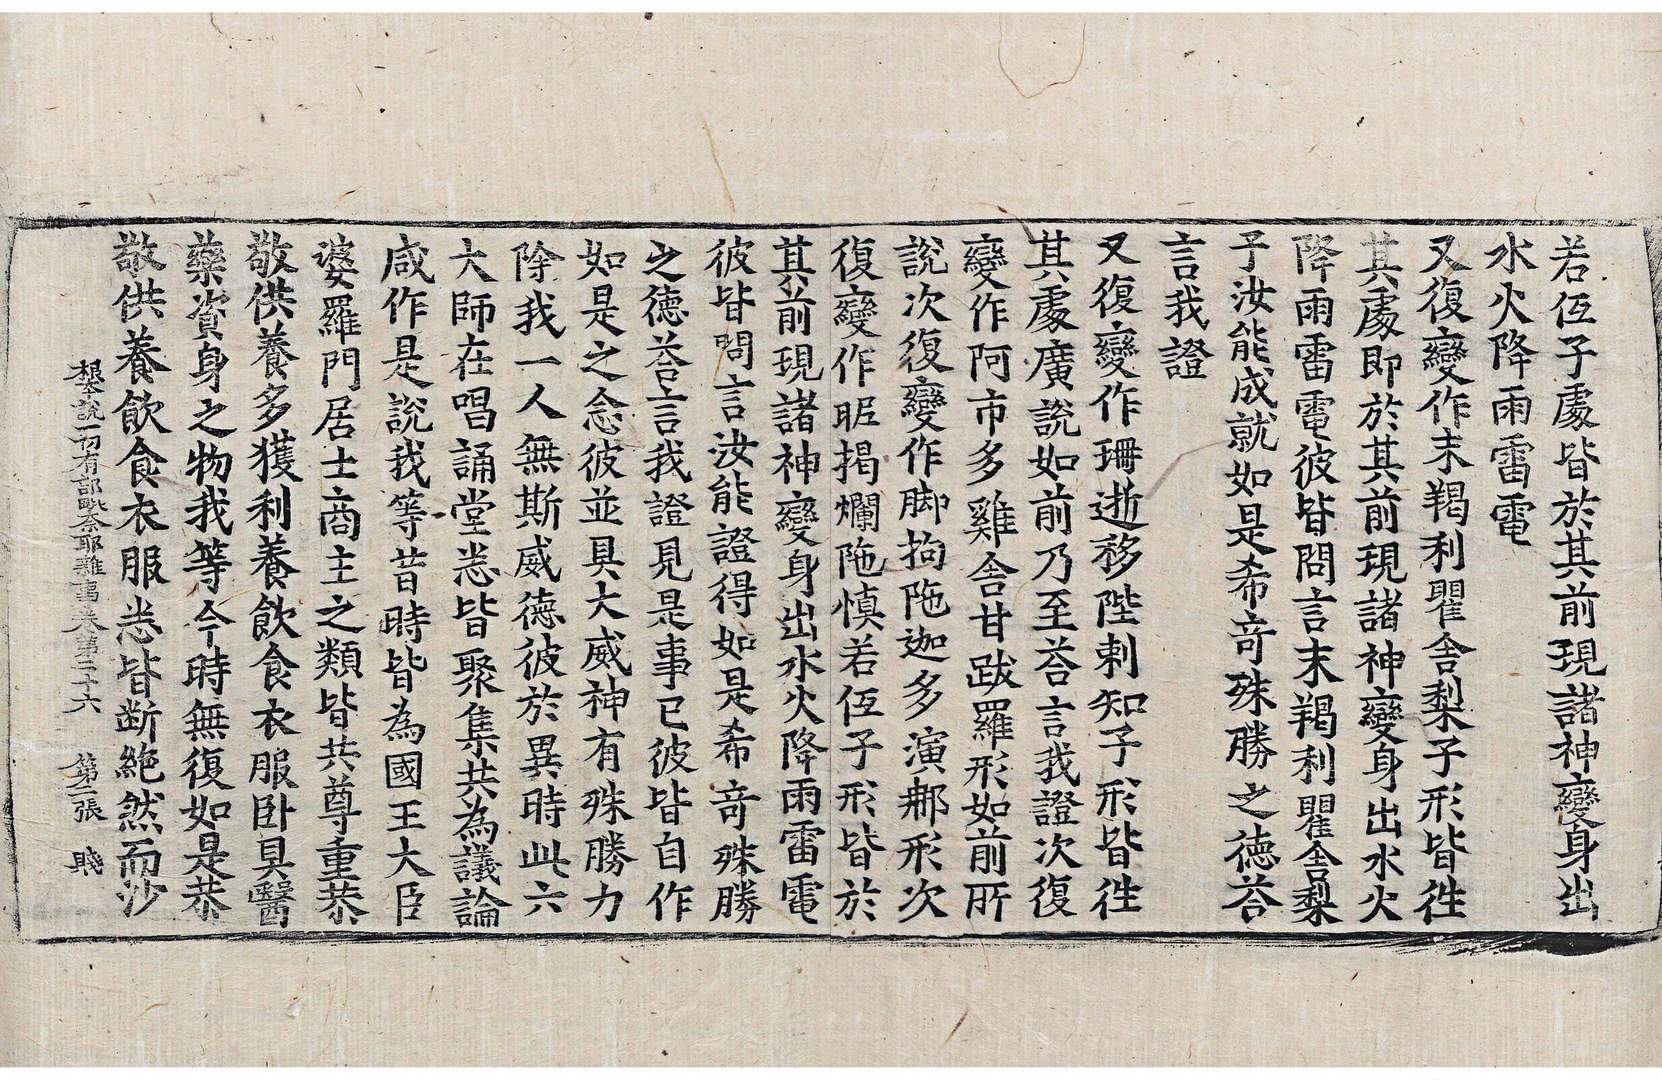 若侄子處皆於其前現諸神變身出
水火降雨雷電
又復變作末羯利瞿舍梨子形皆往
其處即於其前現諸神變身出水火
降雨雷電彼皆問言末羯利瞿舍梨
子汝能成就如是希竒殊勝之德荅
言我證
又復變作珊逝移陛剌知子形皆往
其處廣說如前乃至荅言我證次復
變作阿市多雞舍甘跋羅形如前所
說次復變作脚拘陁迦多演郍形次
復變作昵揭爛陁慎若侄子形皆於
其前現諸神變身出水火降雨雷電
彼皆問言汝能證得如是希竒殊勝
之德荅言我證見是事已彼皆自作
如是之念彼並具大威神有殊勝力
除我一人無斯威德彼於異時此六
大師在唱誦堂悉皆聚集共為議論
咸作是說我等昔時皆為國王大臣
婆羅門居士商主之類皆共尊重恭
敬供養多獲利養飲食衣服卧具醫
藥資身之物我等今時無復如是恭
敬供養飲食衣服悉皆断絶然而沙
根本說一切有部毗奈耶雜事卷第二十六 第二張 賤